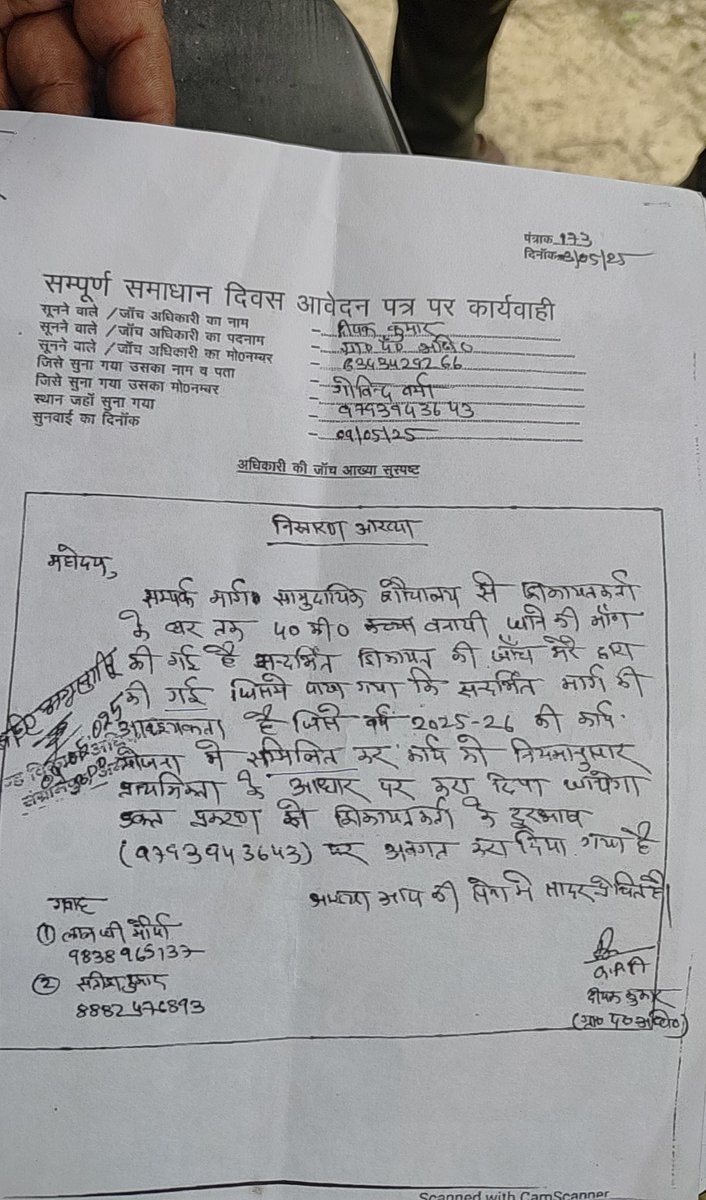 पंत्राक 173
दिनॉक 3/05/25
सम्पूर्ण समाधान दिवस आवेदन पत्र पर कार्यवाही
सूनने वाले /जॉच अधिकारी का नाम - दीपक कुमार
सूनने वाले /जॉच अधिकारी का पदनाम - ग्रा० पं० अधि०
सूनने वाले /जॉच अधिकारी का मो०नम्बर - 8343429266
जिसे सुना गया उसका नाम व पता - गोविन्द वर्मा
जिसे सुना गया उसका मो०नम्बर - 9793943643
स्थान जहॉ सुना गया
सुनवाई का दिनॉक - 09/05/25
अधिकारी की जॉच आख्या सुस्पष्ट
निस्तारण आख्या
महोदय,
सम्पर्क मार्ग सामुदायिक शौचालय से शिकायतकर्ता
के घर तक 50 मी० बनायी जाने की माँग
की गई है सन्दर्भित शिकायत की जाँच मेरे द्वारा
की गई जिसमे पाया गया कि सन्दर्भित मार्ग की
आवश्यकता है जिसे वर्ष 2025-26 की कार्य
योजना मे सम्मिलित कर कार्य को नियमानुसार
प्राथमिकता के आधार पर करा दिया जायेगा
उक्त प्रकरण को शिकायतकर्ता के दूरभाष
(9793943643) पर अवगत करा दिया गया है
आख्या आप की सेवा मे सादर प्रेषित है।
गवाह
① मौर्या
9838965137
② कुमार
8882476893
दीपक कुमार
(ग्रा० पं० अधि०)
Scanned with CamScanner